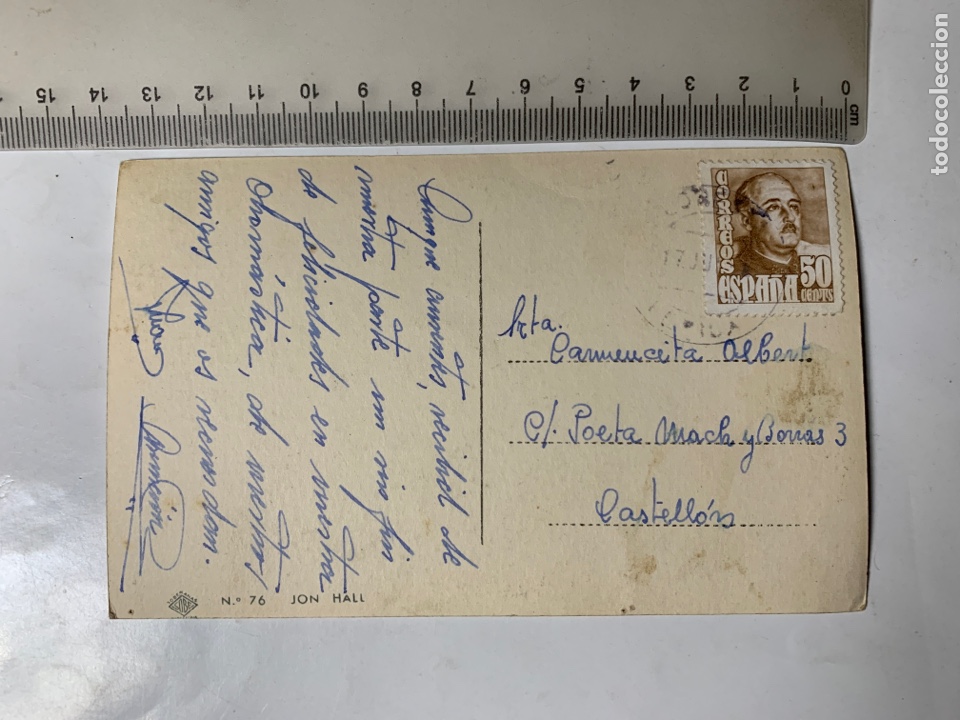 Aunque ausentes, recibid de
nuestra parte un sin fin
de felicidades en vuestra
Onomástica, de vuestros
amigos que os recuerdan.
Asunción
N.º 76 JON HALL
CORREOS
ESPAÑA
50
CENTS
Srta.
Carmencita Albert
C/. Poeta Mach y Borras 3
Castellón
0 1 2 3 4 5 6 7 8 9 10 11 12 13 14 15
cm
todocoleccion